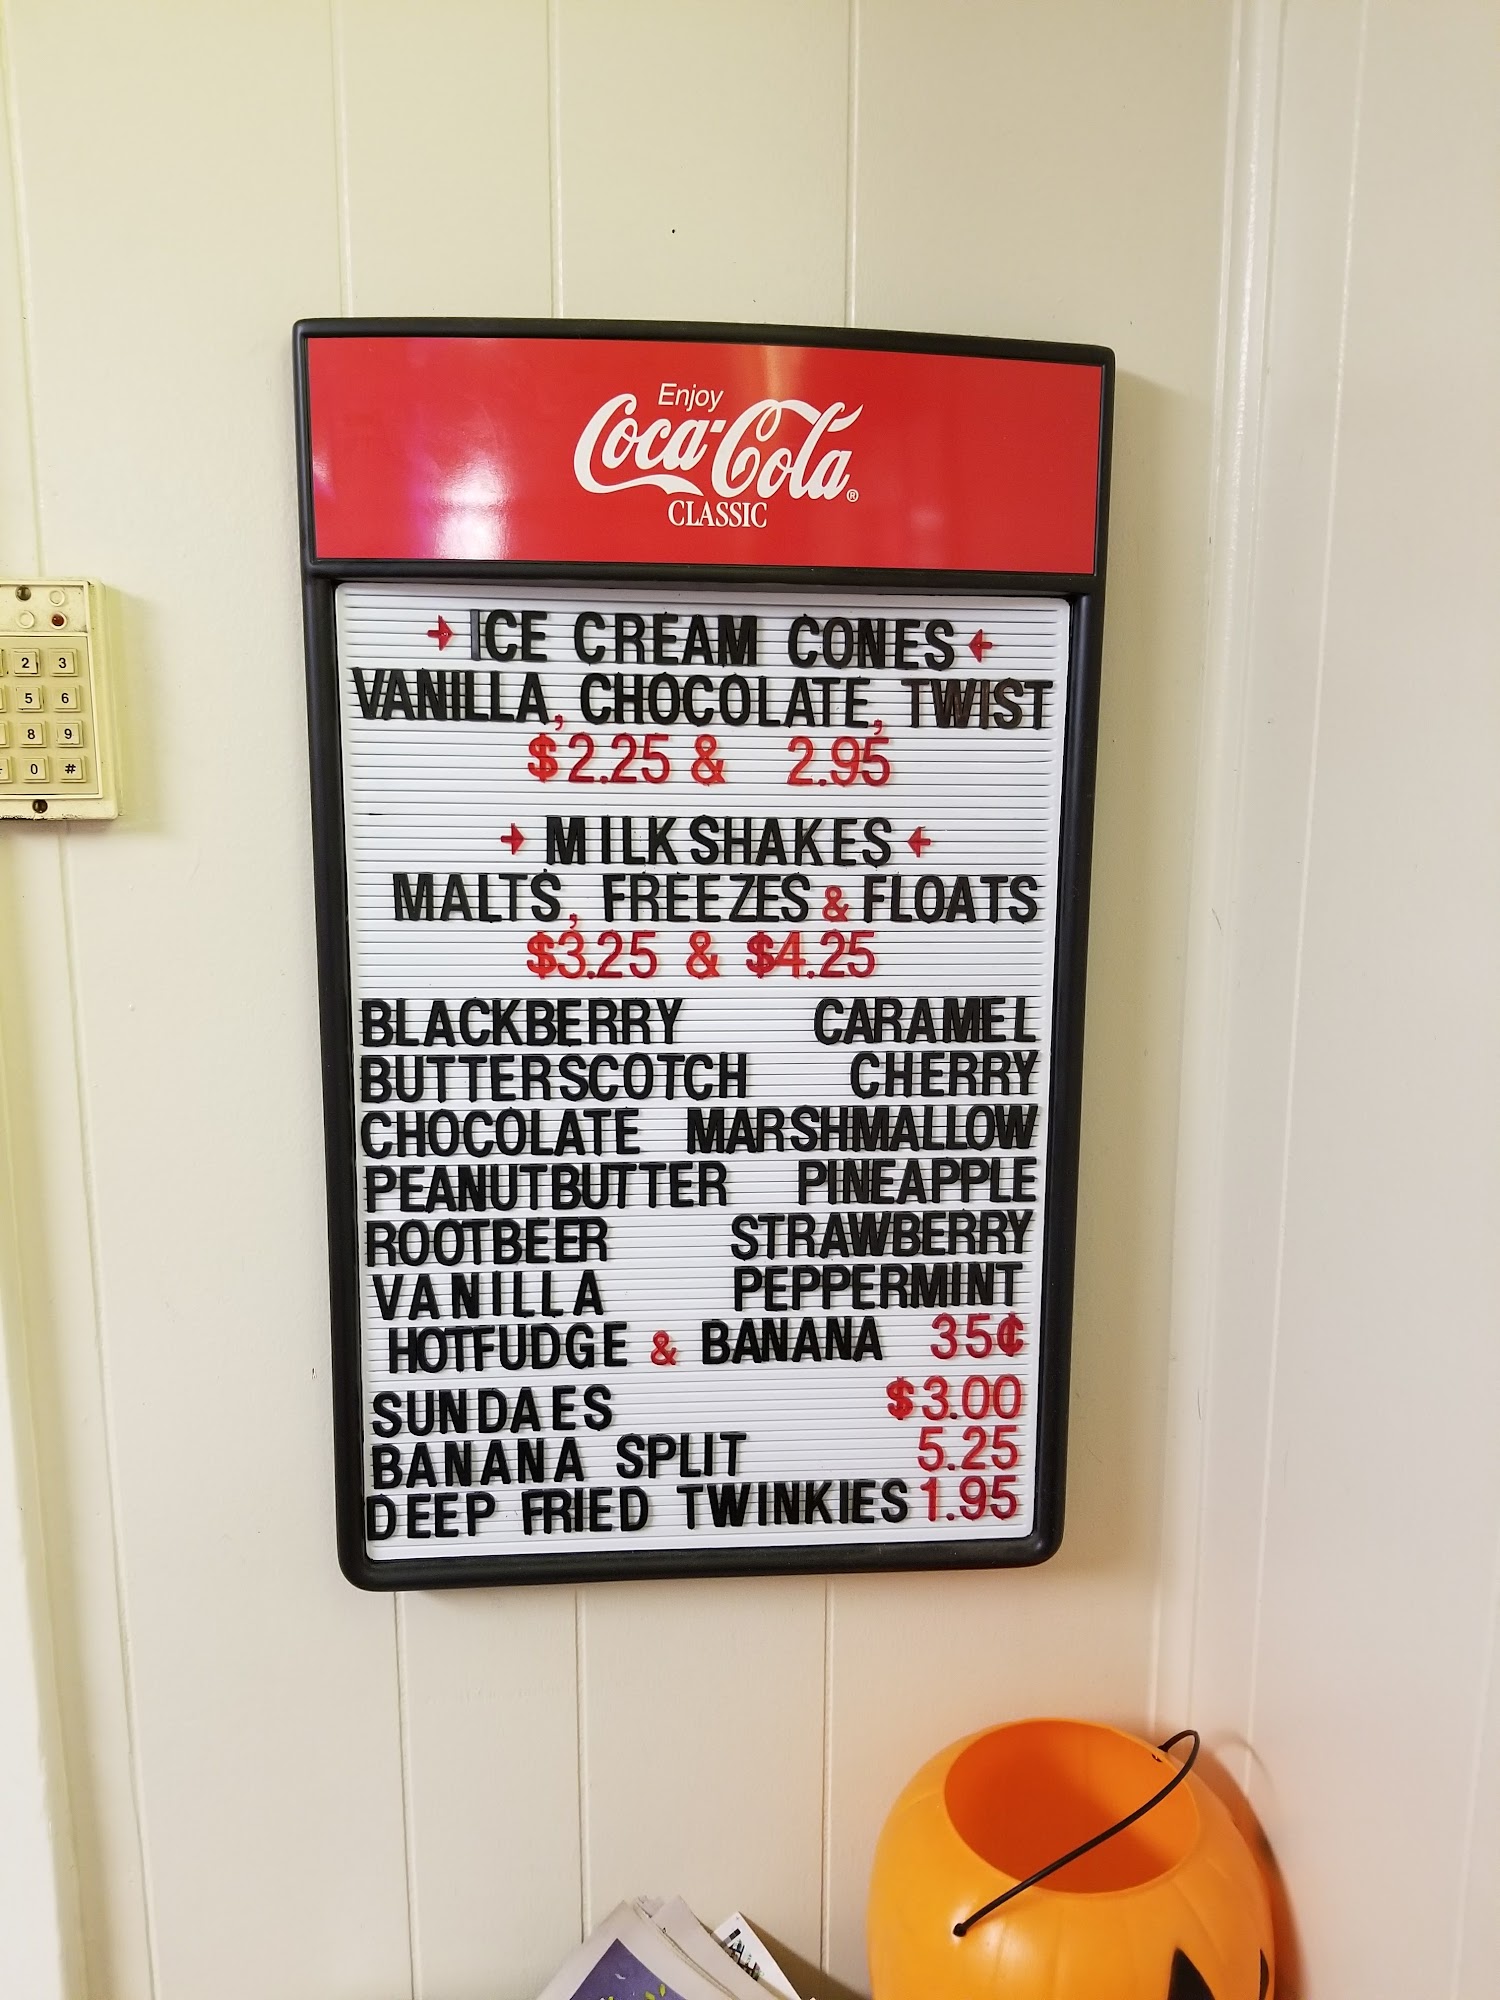 Enjoy
Coca-Cola®
CLASSIC
→ ICE CREAM CONES ←
VANILLA, CHOCOLATE, TWIST
$2.25 & 2.95
→ MILKSHAKES ←
MALTS, FREEZES & FLOATS
$3.25 & $4.25
BLACKBERRY CARAMEL
BUTTERSCOTCH CHERRY
CHOCOLATE MARSHMALLOW
PEANUTBUTTER PINEAPPLE
ROOTBEER STRAWBERRY
VANILLA PEPPERMINT
HOTFUDGE & BANANA 35¢
SUNDAES $3.00
BANANA SPLIT 5.25
DEEP FRIED TWINKIES 1.95
2 3
5 6
8 9
0 #